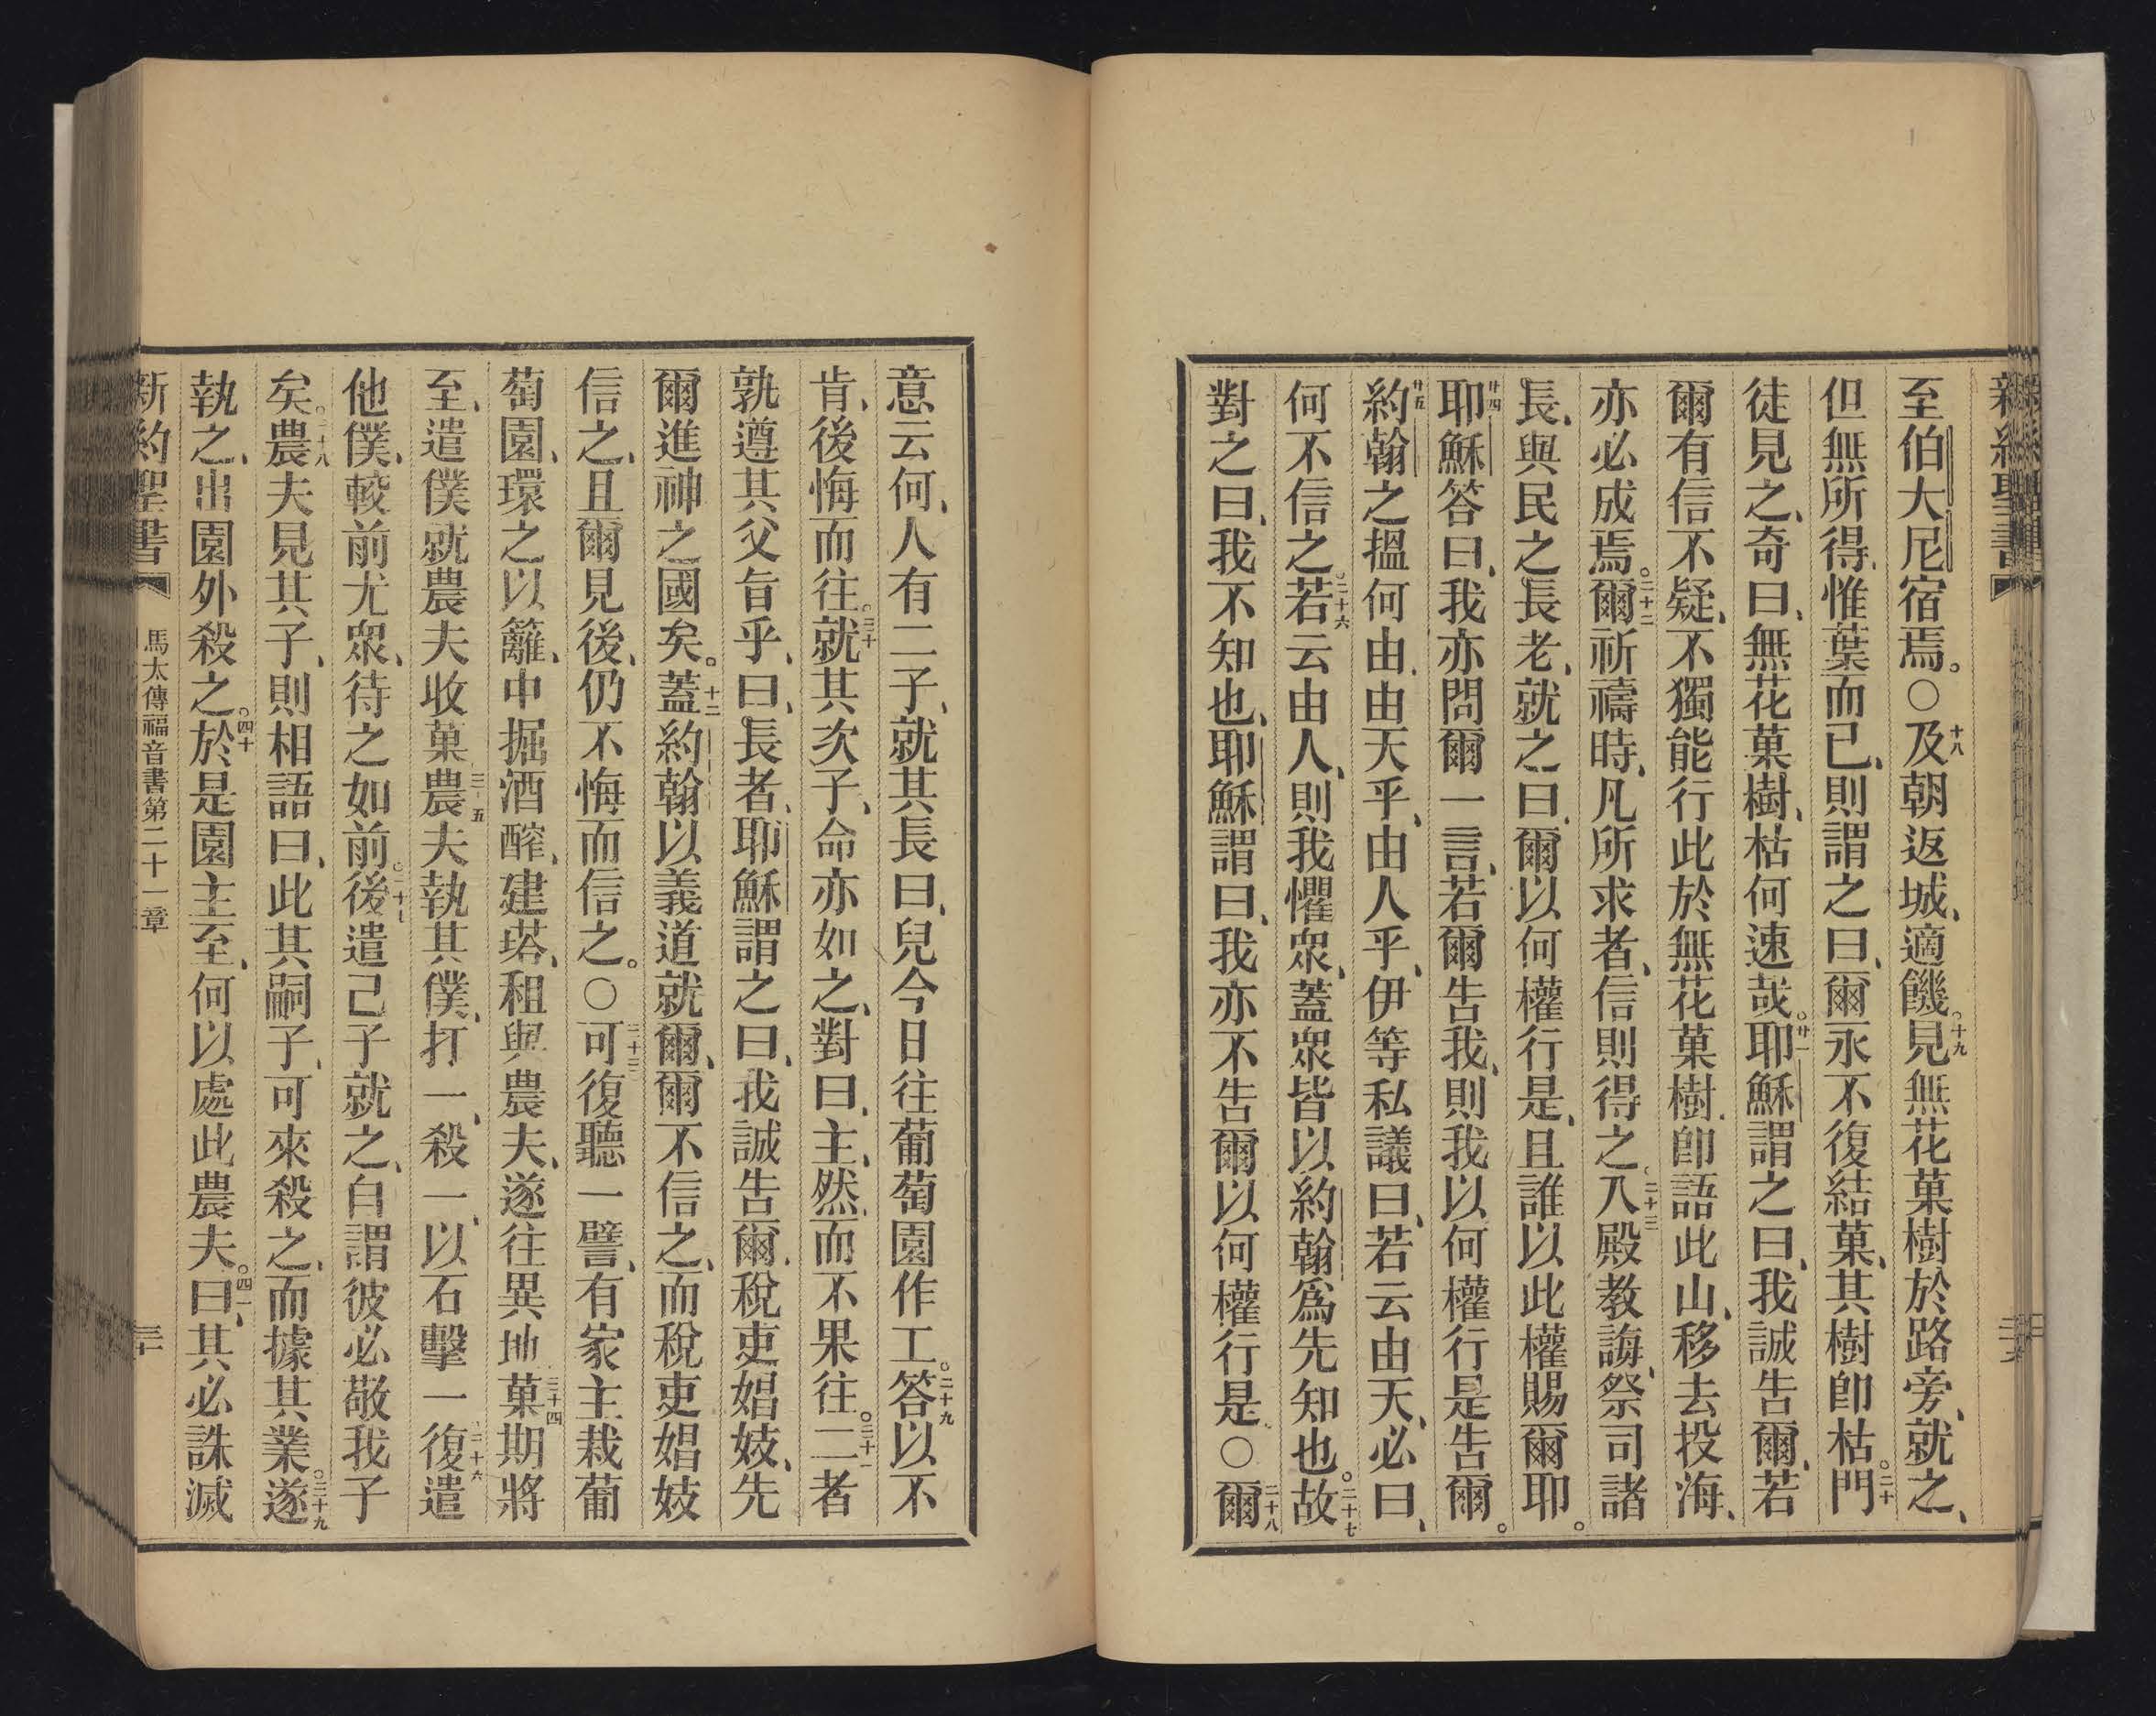 新約聖書
至伯大尼宿焉。○十八及朝返城、適饑。十九見無花菓樹於路旁、就之、
但無所得、惟葉而已、則謂之曰、爾永不復結菓、其樹卽枯。二十門
徒見之、奇曰、無花菓樹、枯何速哉。廿一耶穌謂之曰、我誠告爾、若
爾有信不疑、不獨能行此於無花菓樹、卽語此山、移去投海、
亦必成焉。二十二爾祈禱時、凡所求者、信則得之、二十三入殿教誨、祭司諸
長、與民之長老、就之曰、爾以何權行是、且誰以此權賜爾耶。
廿四耶穌答曰、我亦問爾一言、若爾告我、則我以何權行是告爾。
廿五約翰之搵何由、由天乎、由人乎、伊等私議曰、若云由天、必曰、
何不信之。二十六若云由人、則我懼眾、蓋眾皆以約翰爲先知也。二十七故
對之曰、我不知也、耶穌謂曰、我亦不告爾以何權行是。○二十八爾
意云何、人有二子、就其長曰、兒今日往葡萄園作工。二十九答以不
肯、後悔而往。三十就其次子、命亦如之、對曰、主、然、而不果往。三十一二者
孰遵其父旨乎、曰、長者、耶穌謂之曰、我誠告爾、稅吏娼妓、先
爾進神之國矣。十二蓋約翰以義道就爾、爾不信之、而稅吏娼妓
信之、且爾見後、仍不悔而信之。○三十三可復聽一譬、有家主栽葡
萄園、環之以籬、中掘酒醡、建塔、租與農夫、遂往異地、三十四菓期將
至、遣僕就農夫收菓、三十五農夫執其僕、打一、殺一、以石擊一、三十六復遣
他僕、較前尤眾、待之如前。三十七後遣己子就之、自謂彼必敬我子
矣。三十八農夫見其子、則相語曰、此其嗣子、可來殺之、而據其業。三十九遂
執之、出園外殺之。四十於是園主至、何以處此農夫。四一曰、其必誅滅
新約聖書 馬太傳福音書第二十一章 三十